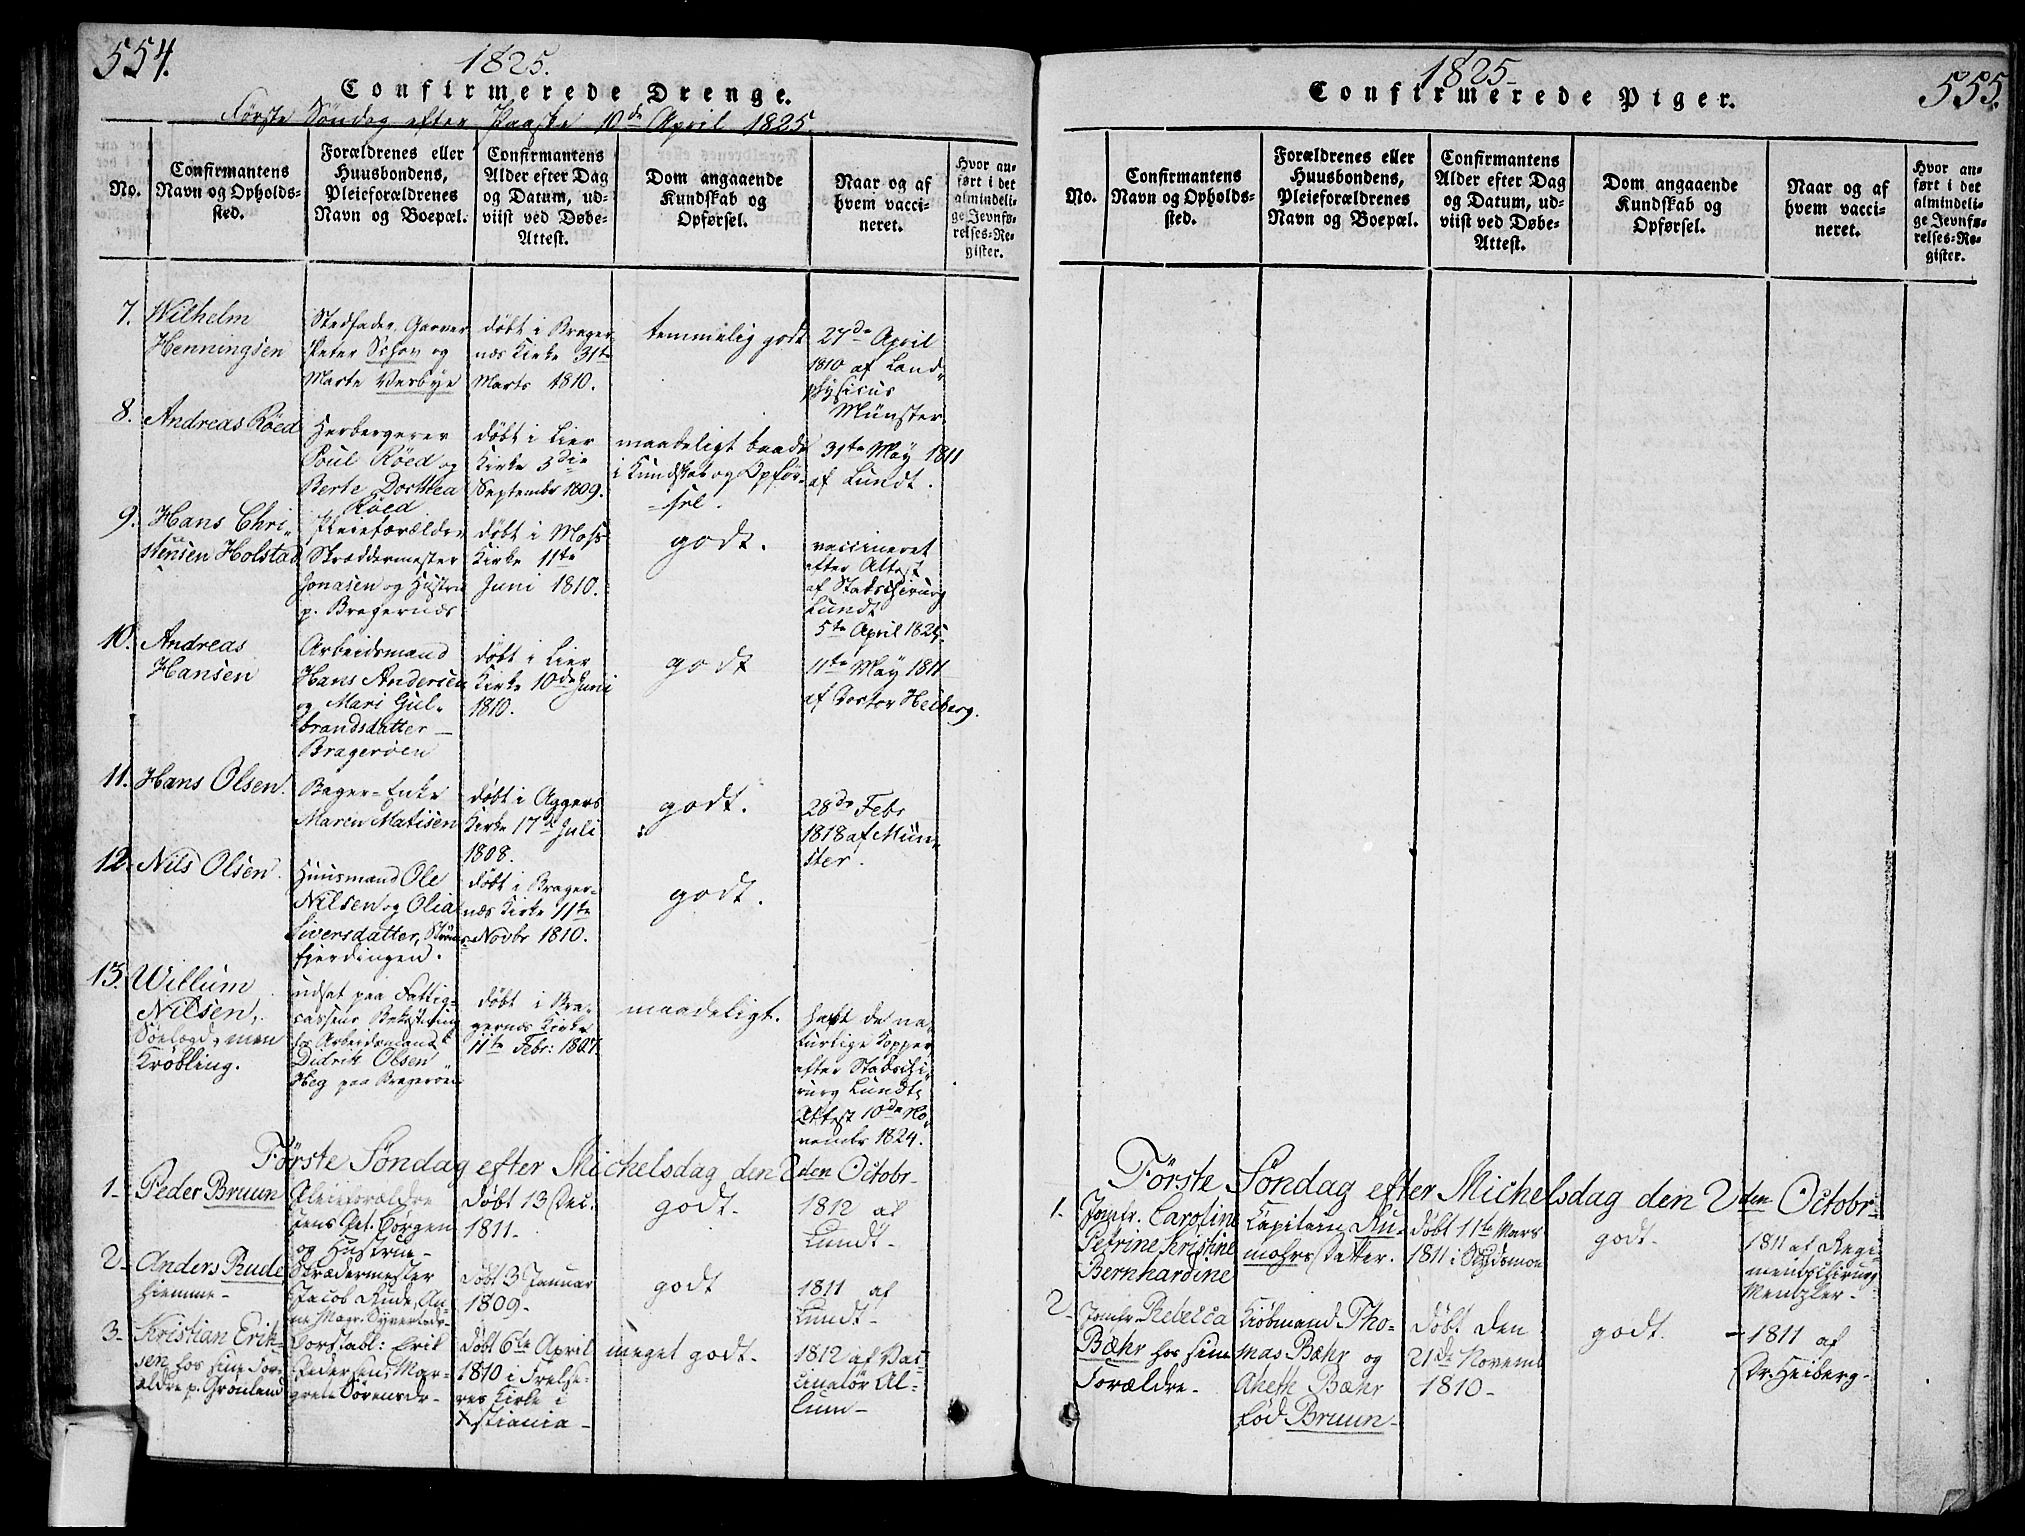 554.
1825.
Confirmerede Drenge.
Første Søndag efter Paaske 10de April 1825.
No.
Confirmantens
Navn og Opholds-
sted.
Forældrenes eller
Huusbondens,
Pleieforældrenes
Navn og Boepæl.
Confirmantens
Alder efter Dag
og Datum, ud-
viist ved Døbe-
Attest.
Dom angaaende
Kundskab og
Opførsel.
Naar og af
hvem vacci-
neret.
Hvor an-
ført i det
almindeli-
ge Jevnfø-
relses-Re-
gister.
7.
Wilhelm
Henningsen
Stedfader, Garver
Peter Schou og
Marte Verbye
døbt i Brager-
næs Kirke 31te
Marts 1810.
temmelig godt
27de April
1810 af Land-
physicus
Münster.
8.
Andreas Röed
Herbergerer
Poul Röed og
Berte Dorthea
Röed
døbt i Lier
Kirke 3die
September 1809.
maadeligt baade
i Kundskab og Opfør-
sel.
31te May 1811
af Lundt.
9.
Hans Chri-
stensen Holstad
Pleieforældre
Skræddermester
Jonasen og Hustru
p. Bragernæs
døbt i Moss
Kirke 11te
Juni 1810.
godt.
vaccineret
efter Attest
af Stadschirurg
Lundt
5te April 1825.
10.
Andreas
Hansen
Arbeidsmand
Hans Andersen
og Mari Gul-
brandsdatter
Bragerøen
døbt i Lier
Kirke 10de Juni
1810.
godt
11te May 1811
af Doctor Heiberg.
11.
Hans Olsen.
Bager-Enke
Maren Matisen
døbt i Aggers
Kirke 17de Juli
1808.
godt.
28de Febr
1818 af Mün-
ster.
12.
Nils Olsen.
Huusmand Ole
Nilsen og Olia
Siversdatter, Strøms-
fjerdingen.
døbt i Brager-
næs Kirke 11te
Novbr 1810.
godt.
13.
Willum
Nilsen,
Krøbling.
udsat paa Fattig-
cassens Bekostning
hos Arbeidsmand
Didrik Olsen
Heg paa Bragerøen
døbt i Bra-
gernæs Kirke
11te Febr: 1807.
maadeligt.
havt de na-
turlige Kopper
efter Stadschi-
rurg Lundts
Attest 10de No-
vembr 1824.
Første Søndag efter Michelsdag den 2den Octobr
1-
Peder Bruun
Pleieforældre
Jens Pet. Börgen
og Hustrue-
Døbt 13 Dec.
1811-
godt-
1812 af
Lundt-
2-
Anders Rude
hiemme-
Skrædermester
Jacob Rude, An-
ne Mar. Syvertsdr-
Døbt 3 Januar
1809-
godt
1811 af
Lundt-
3-
Kristian Erik-
sen hos sine For-
ældre p. Grønland
Constabl: Erik
Pedersen, Mar-
grete Sörensdr-
Døbt 6te April
1810 i Frelse-
res Kirke i
Xstiania-
meget godt-
1812 af Vac-
cinatør Al-
lum-
1825-
555.
Confirmerede Piger.
No.
Confirmantens
Navn og Opholds-
sted.
Forældrenes eller
Huusbondens,
Pleieforældrenes
Navn og Boepæl.
Confirmantens
Alder efter Dag
og Datum, ud-
viist ved Døbe-
Attest.
Dom angaaende
Kundskab og
Opførsel.
Naar og af
hvem vacci-
neret.
Hvor an-
ført i det
almindeli-
ge Jevnfø-
relses-Re-
gister.
Første Søndag efter Michelsdag den 2den Octobr-
1-
Jomfr. Caroline
Petrine Kristine
Bernhardine
Kapitain Ru-
mohrs Datter.
Døbt 11te Mars
1811 i
godt-
1811 af Regi-
mentschirurg
Mentzler-
2-
Jomfr Rebecca
Bæhr hos sine
Forældre-
Kiöbmand Tho-
mas Bæhr og
Bæhr
föd Bruun-
Døbt den
21de Novemb
1810-
godt.
1811 af
Dr. Heiberg-